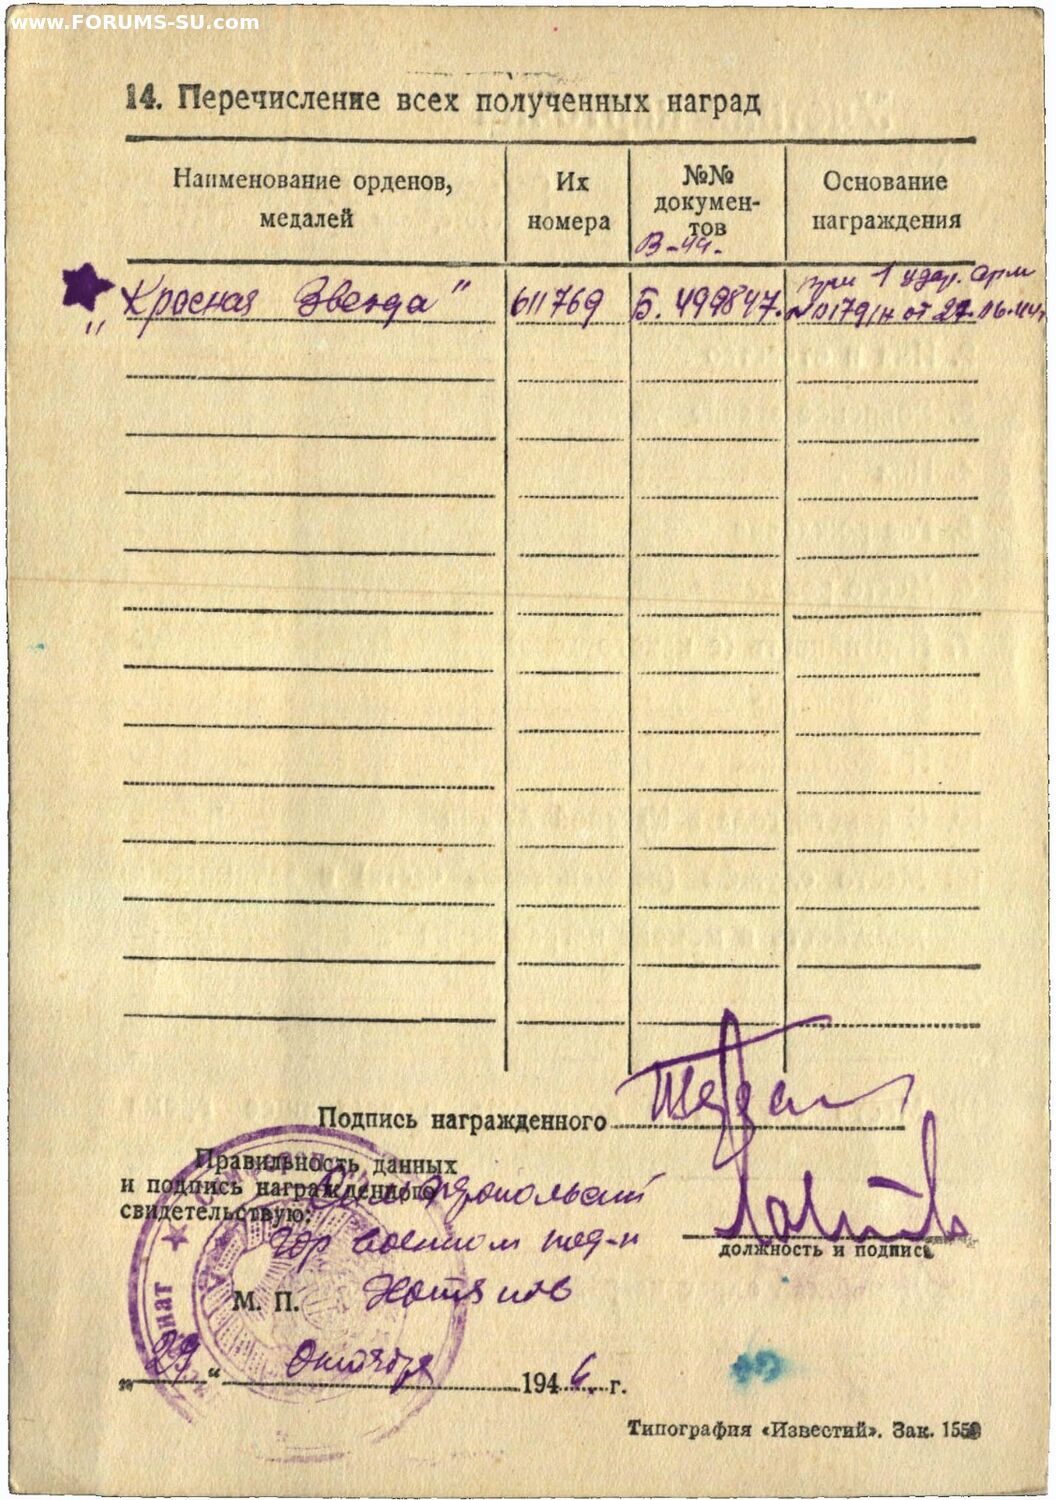 www.FORUMS-SU.com
14. Перечисление всех полученных наград
Наименование орденов, медалей
Их номера
№№ документов
Основание награждения
В-44.
"Красная Звезда"
611769
Б. 499847.
при 1 удар. арм
№ 0179/н от 27.06.44г
Подпись награжденного
Правильность данных
и подпись награжденного
свидетельствую:
гор военком под-к
должность и подпись
М. П.
„29“ Октября 1946 г.
Типография «Известий». Зак. 1559